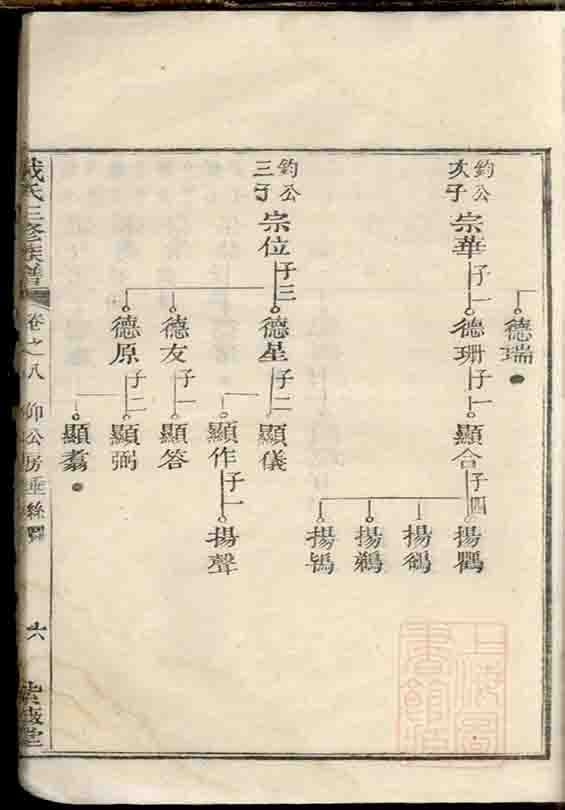 德瑞
鈞公次子
宗華
子一
德珊
子一
顯合
子四
揚鸜
揚鵒
揚鵜
揚鴇
鈞公三子
宗位
子三
德星
子二
顯儀
顯作
子一
揚聲
德友
子一
顯答
德原
子二
顯弼
顯翥
氏三修族譜
卷之八
仰公房垂絲圖
六
上海圖書館藏